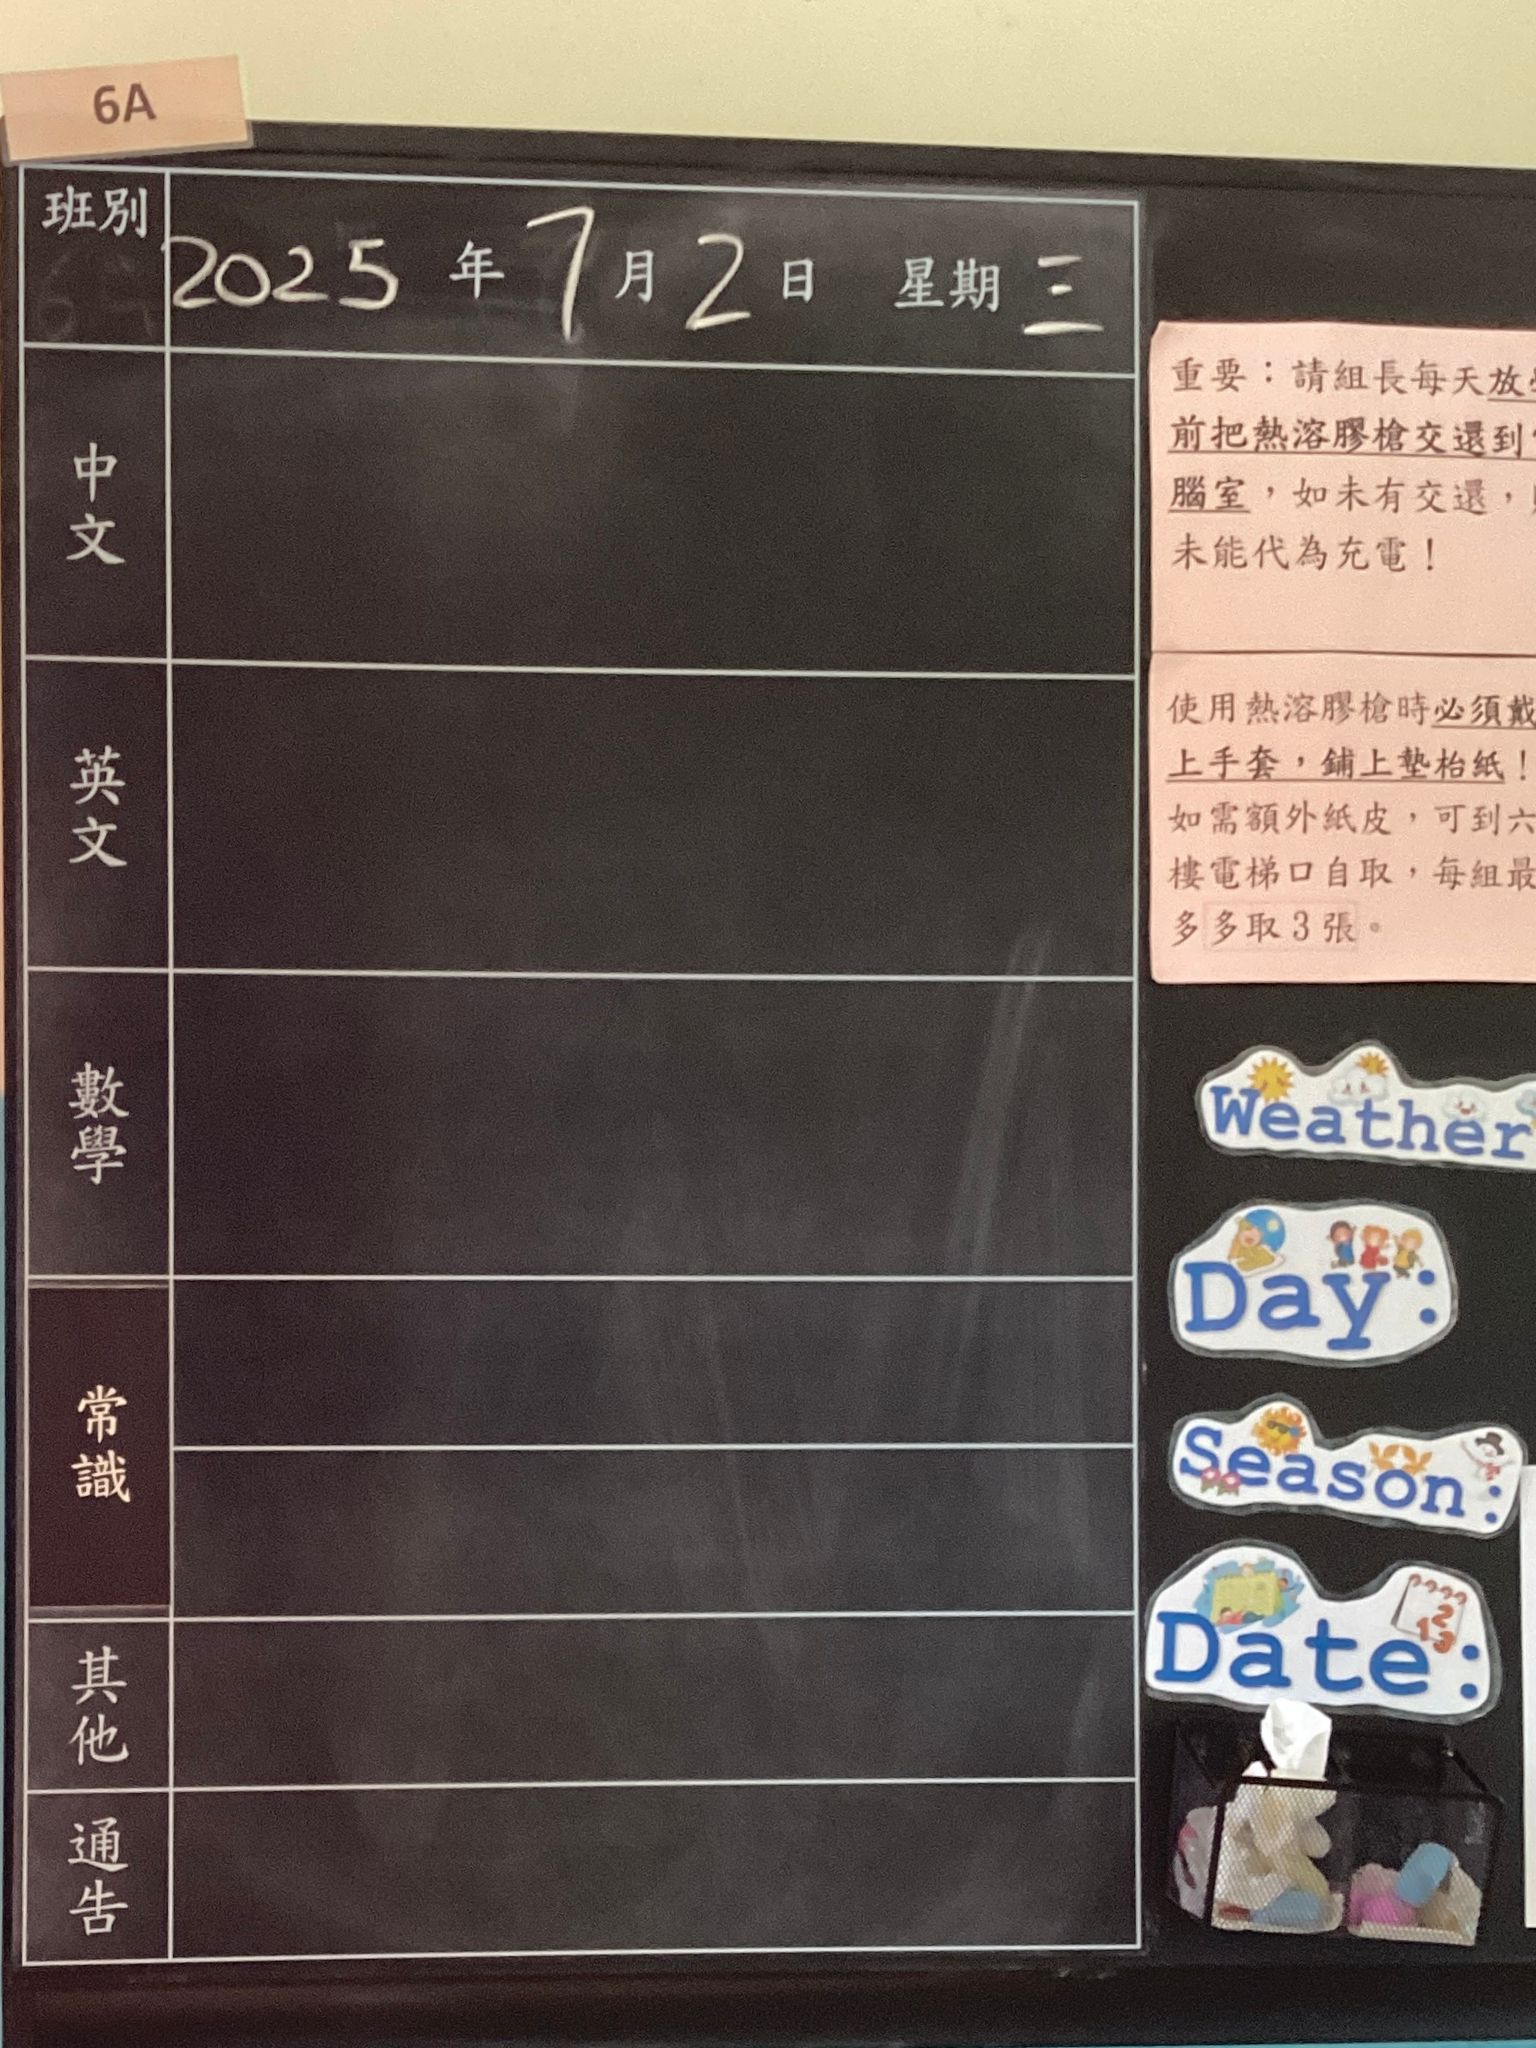 6A
班別
2025 年 7 月 2 日 星期 三
中文
英文
數學
常識
其他
通告
重要：請組長每天放
前把熱溶膠槍交還到
腦室，如未有交還，
未能代為充電！
使用熱溶膠槍時必須戴
上手套，鋪上墊枱紙！
如需額外紙皮，可到六
樓電梯口自取，每組最
多多取3張。
Weather
Day:
Season:
Date: